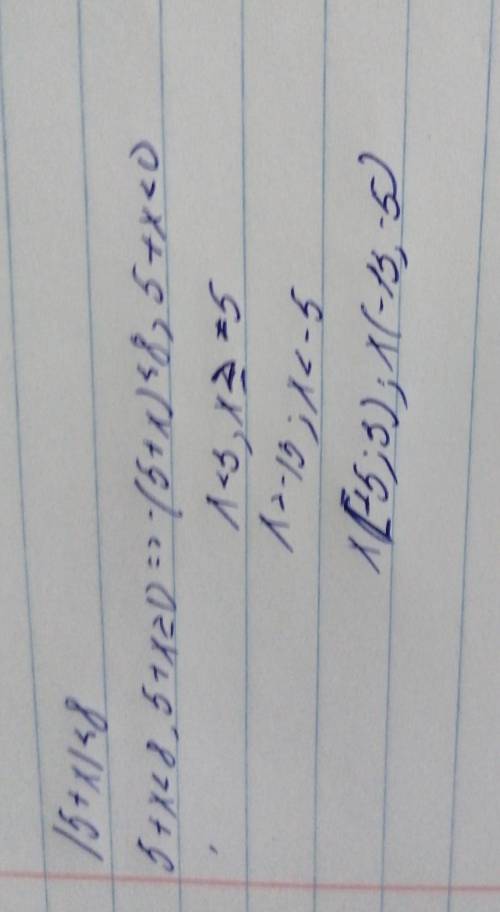 |5+x|<8
5+x<8, 5+x≥0 => -(5+x)<8, 5+x<0
x<3, x≥-5
x>-13; x<-5
x[-5;3); x(-13,-5)